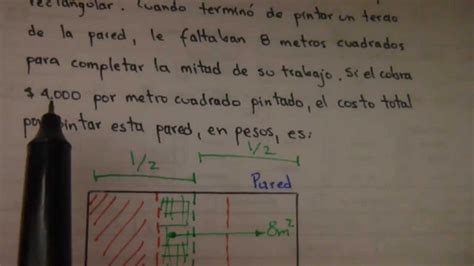 rectangular. Cuando terminó de pintar un tercio
de la pared, le faltaban 8 metros cuadrados
para completar la mitad de su trabajo. Si el cobra
$ 4.000 por metro cuadrado pintado, el costo total
pintar esta pared, en pesos, es:
1/2 1/2
Pared
8m²